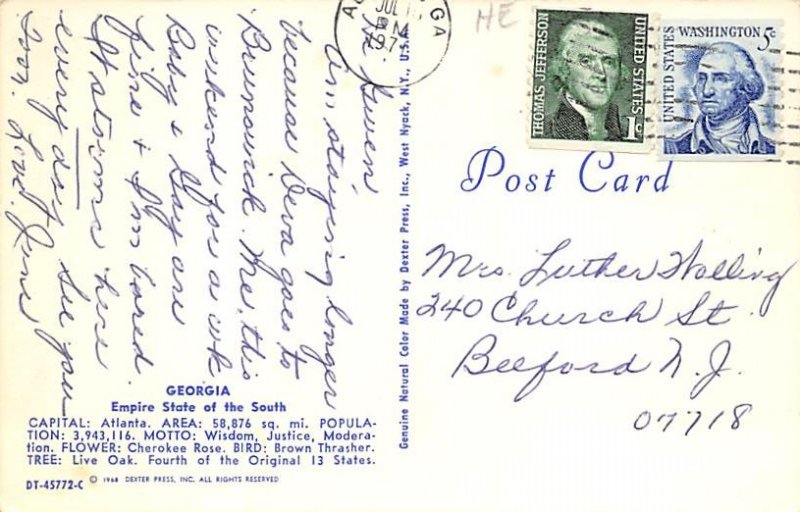 Hi Gwen
I'm staying longer
because Deva goes to
Brunswick Me. this
weekend for a wk
Baby & Gay are
fine & I'm bored.
It storms here
every day. See you
soon. Love. June
JUL
PM
197
GA
HE
THOMAS JEFFERSON
UNITED STATES
1c
UNITED STATES
WASHINGTON 5c
Post Card
Genuine Natural Color Made by Dexter Press, Inc., West Nyack, N.Y., U.S.A.
Mrs. Luther Holling
240 Church St.
Belford N.J.
07718
GEORGIA
Empire State of the South
CAPITAL: Atlanta. AREA: 58,876 sq. mi. POPULA-
TION: 3,943,116. MOTTO: Wisdom, Justice, Modera-
tion. FLOWER: Cherokee Rose. BIRD: Brown Thrasher.
TREE: Live Oak. Fourth of the Original 13 States.
DT-45772-C © 1968 DEXTER PRESS, INC. ALL RIGHTS RESERVED